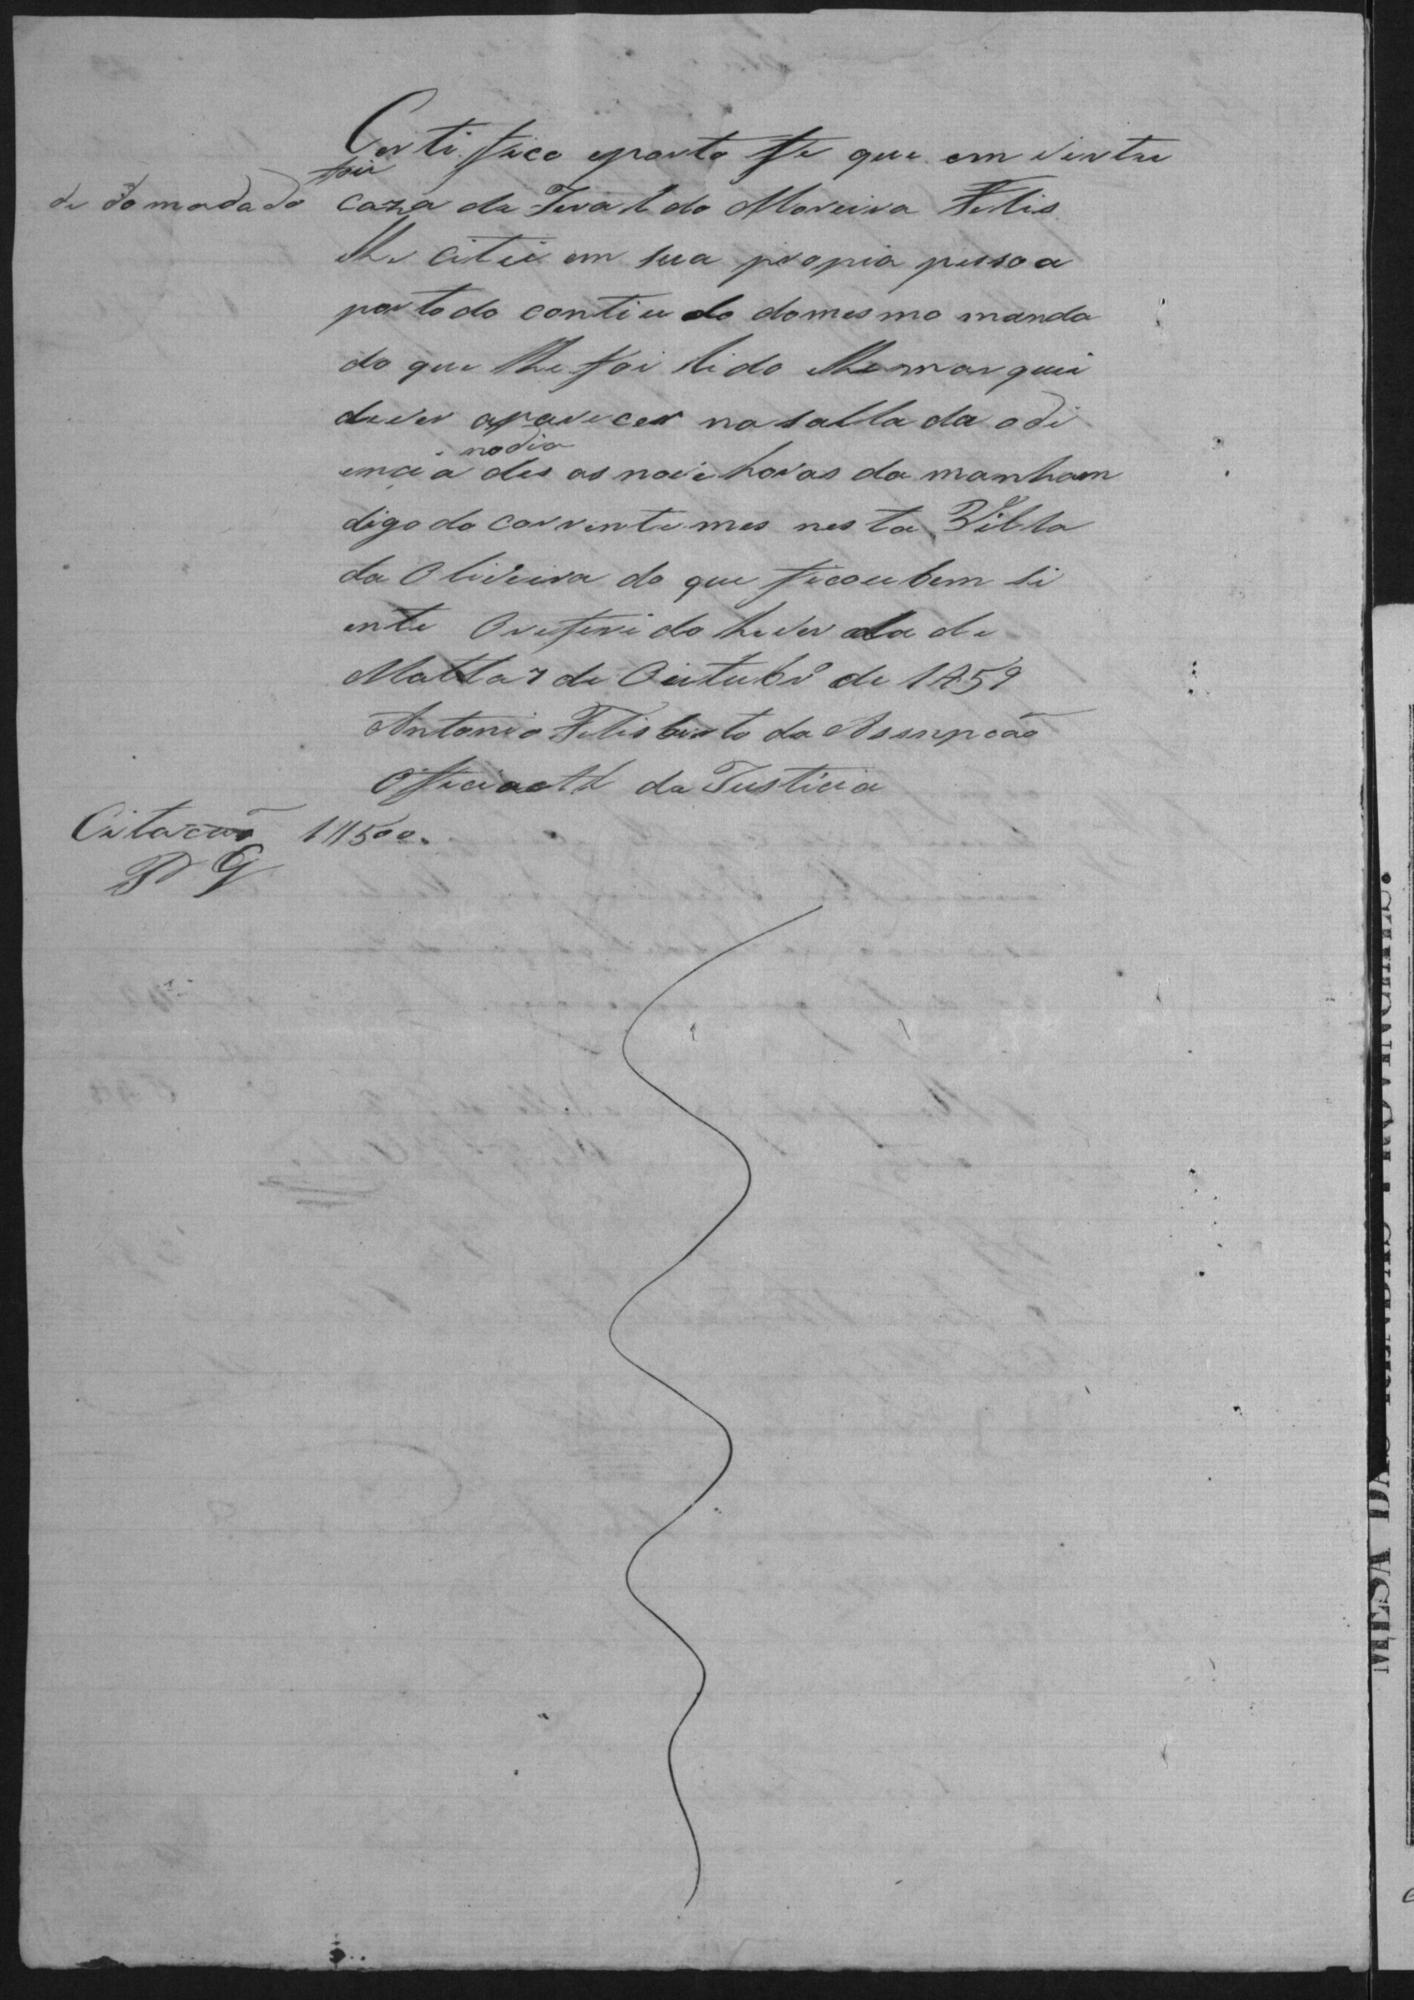 Certifico eporto fe que em virtu
foi
de do mandado caza de Geraldo Moreira Felis
lhe citei em sua propia pessoa
portodo contiudo domesmo manda
do que lhe foi lido lhemarquei
dever aparecer na salla da odi
no dia
encia des as nove horas da manham
digo do corrente mes nesta Villa
da Oliveira do que ficou bem si
ente O referido he verdade
Matta 7 de Outubrº de 1859
Antonio Felisberto da Assupcaõ
Officiaol da Justicia
Citacaõ 1$500.
P G
MESA DAS RENDAS